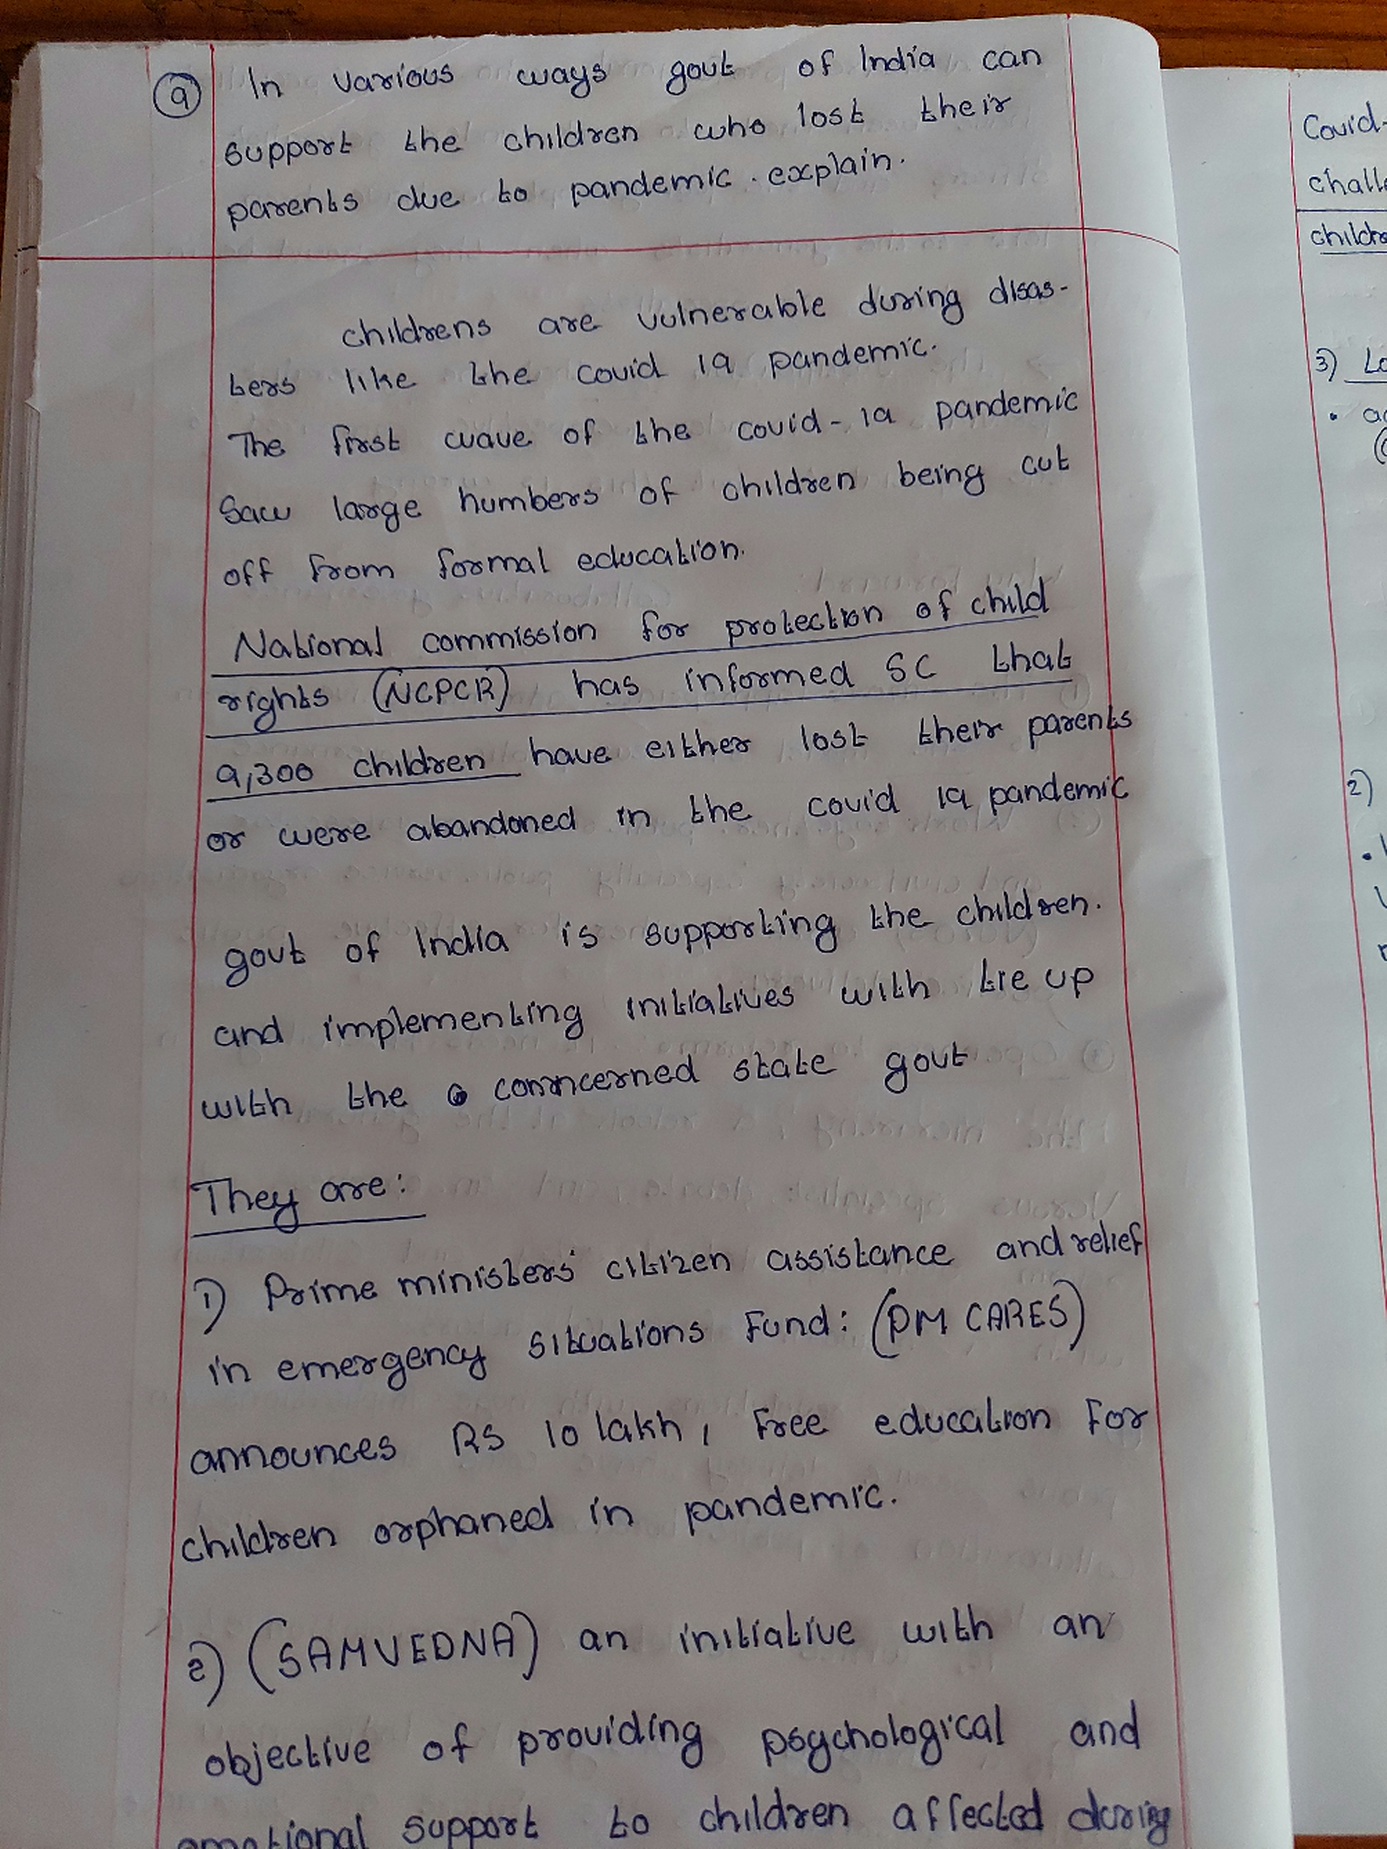 9 In various ways govt of India can
support the children who lost their
parents due to pandemic. explain.
childrens are vulnerable during disas-
ters like the covid 19 pandemic.
The first wave of the covid-19 pandemic
Saw large numbers of children being cut
off from formal education.
National commission for protection of child
rights (NCPCR) has informed SC that
9,300 children have either lost their parents
or were abandoned in the covid 19 pandemic
govt of India is supporting the children.
and implementing initiatives with tie up
with the conncerned state govt
They are:
1) Prime ministers' citizen assistance and relief
in emergency situations Fund: (PM CARES)
announces RS 10 lakh, Free education For
children orphaned in pandemic.
2) (SAMVEDNA) an initiative with an
objective of providing psychological and
emotional support to children affected during
Covid-
3)
2)